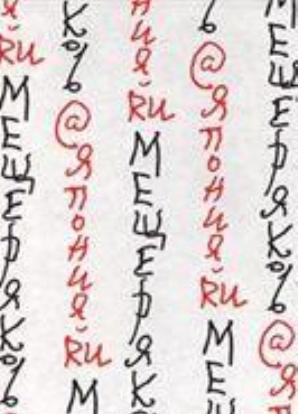 Я.RUМЕЩЕРЯКОВ
КОВ@ЯПОНИЯ.RUМ
НИЯ.RUМЕЩЕРЯК
В@ЯПОНИЯ.RUМЕЩ
МЕЩЕРЯКОВ@Я